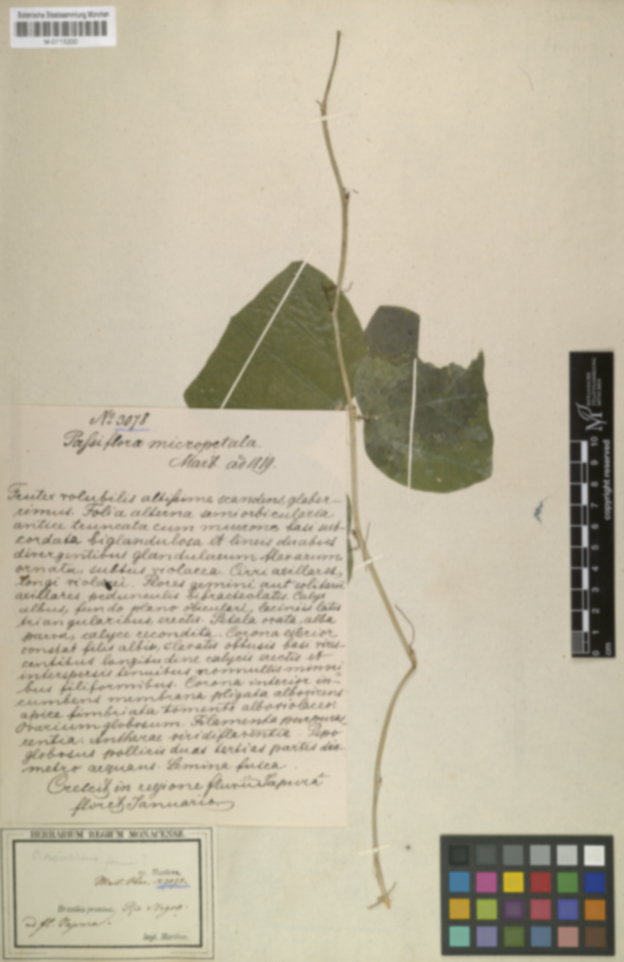 Botanische Staatssammlung München
M-0113200
No 3078
Passiflora micropetala.
Mart. ad 1819.
Frutex volubilis altissime scandens, glaber-
rimus. Folia alterna semiorbicularia
antice truncata cum mucrone basi sub
cordata biglandulosa et lineis duabus
divergentibus glandularum flavarum
ornata, subtus violacea. Cirri axillares,
longi violacei. Flores gemini aut solitarii
axillares pedunculis bibracteolatis. Calyx
albus, fundo plano orbiculari, laciniis latis
triangularibus erectis. Petala ovata, alba
parva, calyce recondita. Corona exterior
constat filis albis, clavatis obtusis basi vires-
centibus longitudine calycis erectis et
interspersis tenuibus nonnullis
bus filiformibus. Corona interior in-
cumbens membrana plicata albovirens
apice fimbriata tomento alboviolaceo
Ovarium globosum. Filamenta purpuras-
centia. Antherae viridiflaventia. Pepo
globosus pollicis duas tertias partes dia-
metro aequans. Semina fusca.
Crescit in regione fluvii Japurá
floret Januario
HERBARIUM REGIUM MONACENSE.
Mart. Obs. 3078.
Brasilia provinc. Rio Negro
ad fl. Japura.
legt. Martius.
copyright reserved
cm